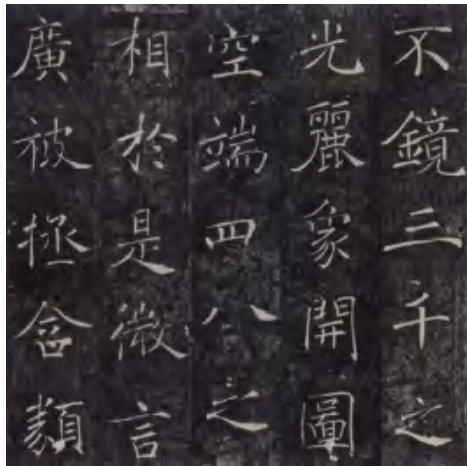 不鏡三千之
光麗象開圖
空端四八之
相於是微言
廣被拯含類